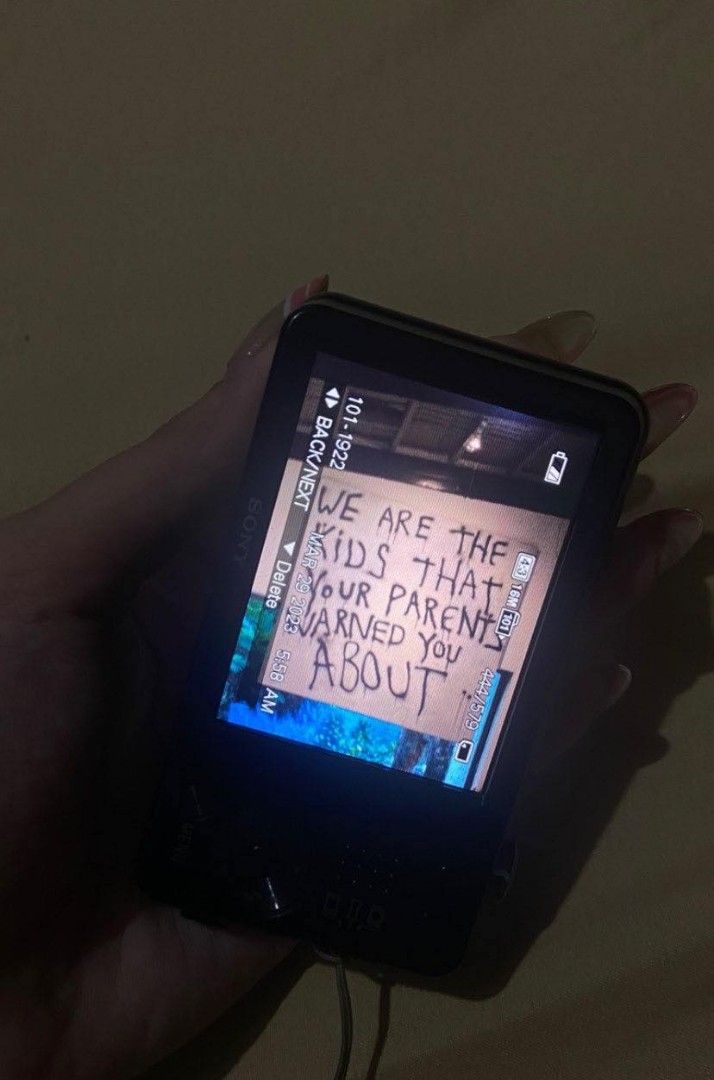 WE ARE THE
KiDS THAT
YOUR PARENTS
WARNED YOU
ABOUT.
101-1922
BACK/NEXT
Delete
MAR 29 2023 5:58 AM
4:3 16M 101
444/579
SONY
MENU